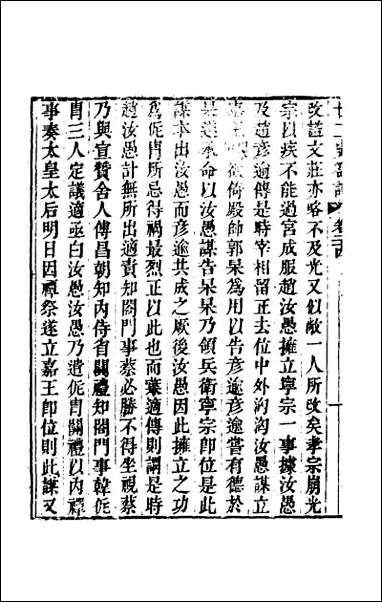 改諡文莊亦略不及光又似敝一人所改矣孝宗崩光
宗以疾不能過宮成服趙汝愚擁立寧宗一事據汝愚
及趙彥逾傳是時宰相留正去位中外洶洶汝愚謀立
嘉王欲倚殿帥郭杲為用以告彥逾彥逾嘗有德於
杲遂承命以汝愚謀告杲杲乃領兵衛寧宗卽位是此
謀本出汝愚而彥逾共成之厥後汝愚因此擁立之功
為侂胄所忌得禍最烈正以此也而葉適傳則謂是時
趙汝愚計無所出適責知閤門事蔡必勝不得坐視蔡
乃與宣贊舍人傅昌朝知內侍省關禮知閤門事韓侂
胄三人定議適亟白汝愚汝愚乃遣侂胄關禮以內禪
事奏太皇太后明日因禫祭遂立嘉王卽位則此謀又